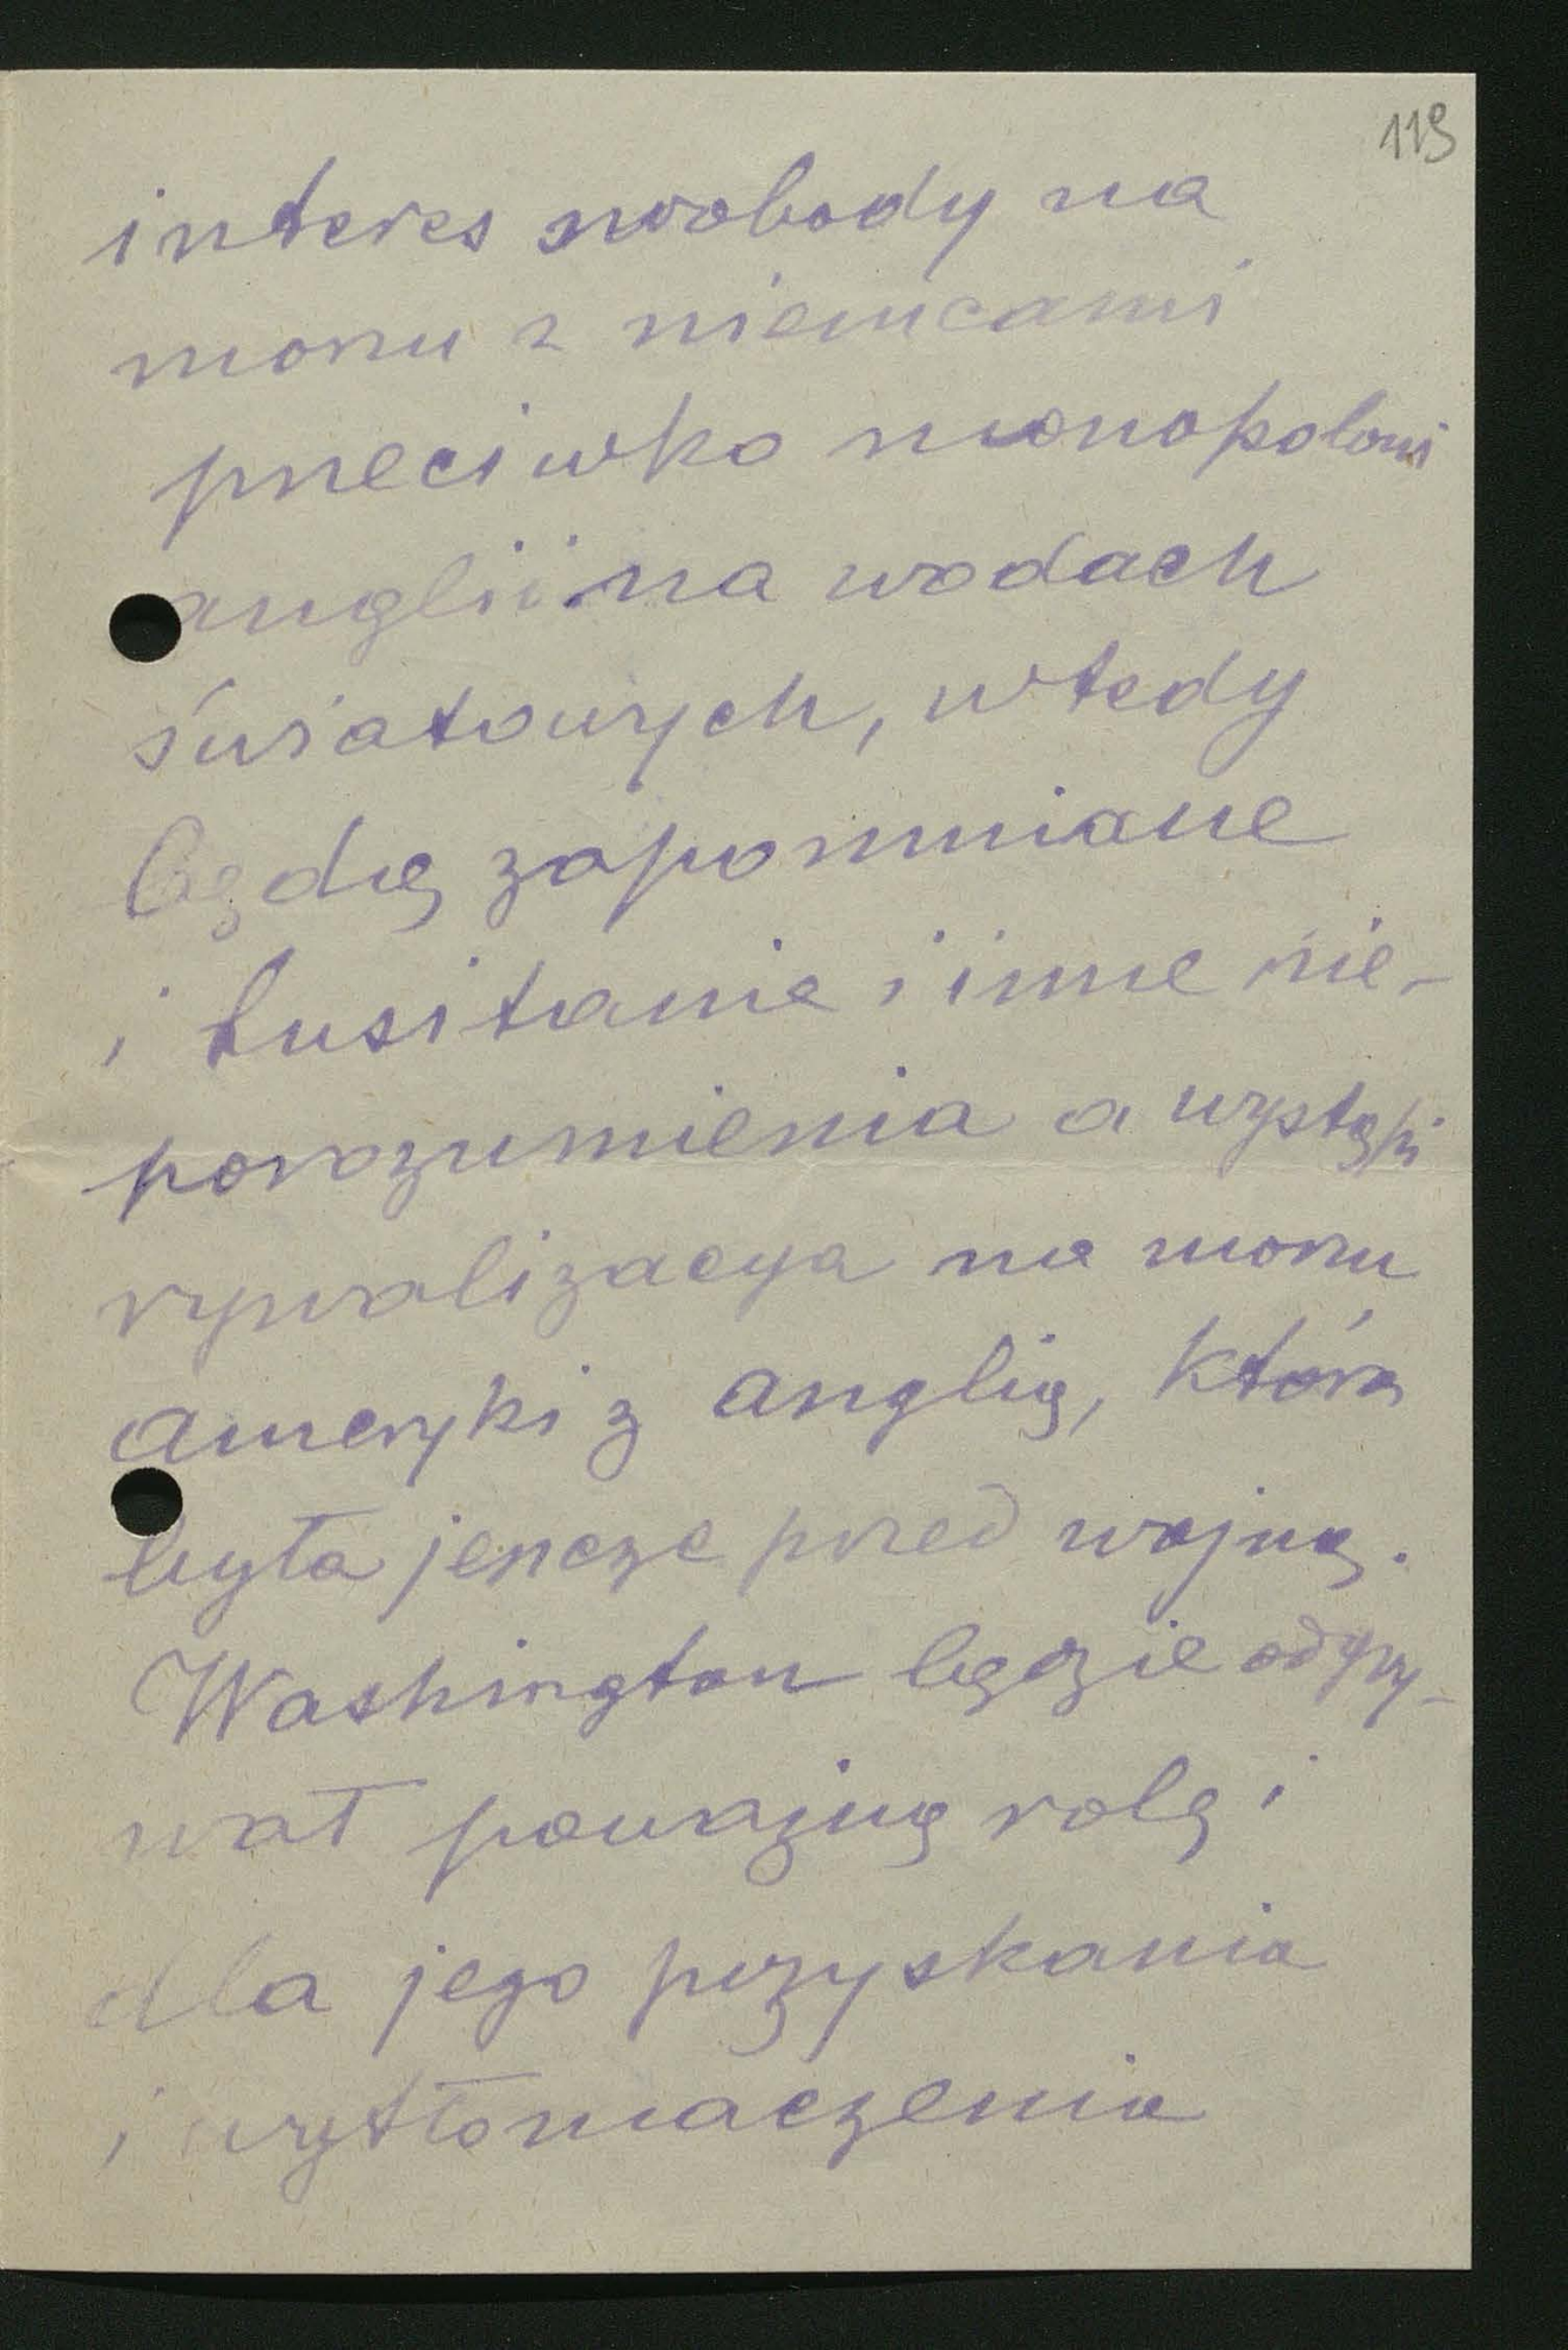 119
interes swobody na
morzu z niemcami
przeciwko monopolowi
anglii na wodach
światowych, wtedy
będą zapomniane
i Lusitanie i inne nie-
porozumienia a wystąpi
rywalizacya na morzu
Ameryki z Anglią, która
była jeszcze przed wojną.
Washington będzie odgry-
wał poważną rolę i
dla jego pozyskania
i wytłomaczenia